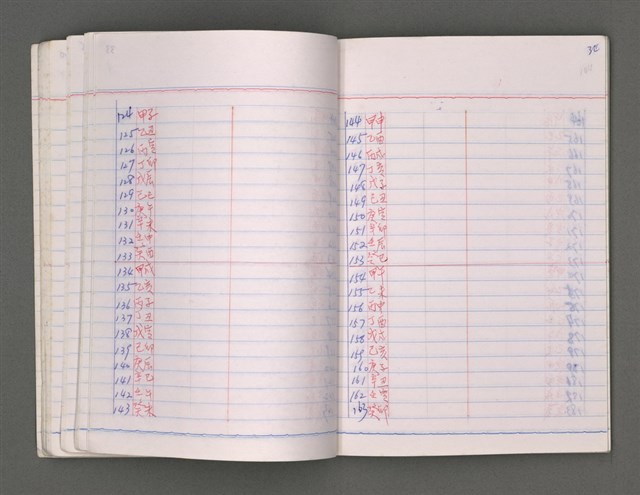 124 甲子
125 乙丑
126 丙寅
127 丁卯
128 戊辰
129 己巳
130 庚午
131 辛未
132 壬申
133 癸酉
134 甲戌
135 乙亥
136 丙子
137 丁丑
138 戊寅
139 己卯
140 庚辰
141 辛巳
142 壬午
143 癸未
144 甲申
145 乙酉
146 丙戌
147 丁亥
148 戊子
149 己丑
150 庚寅
151 辛卯
152 壬辰
153 癸巳
154 甲午
155 乙未
156 丙申
157 丁酉
158 戊戌
159 己亥
160 庚子
161 辛丑
162 壬寅
163 癸卯